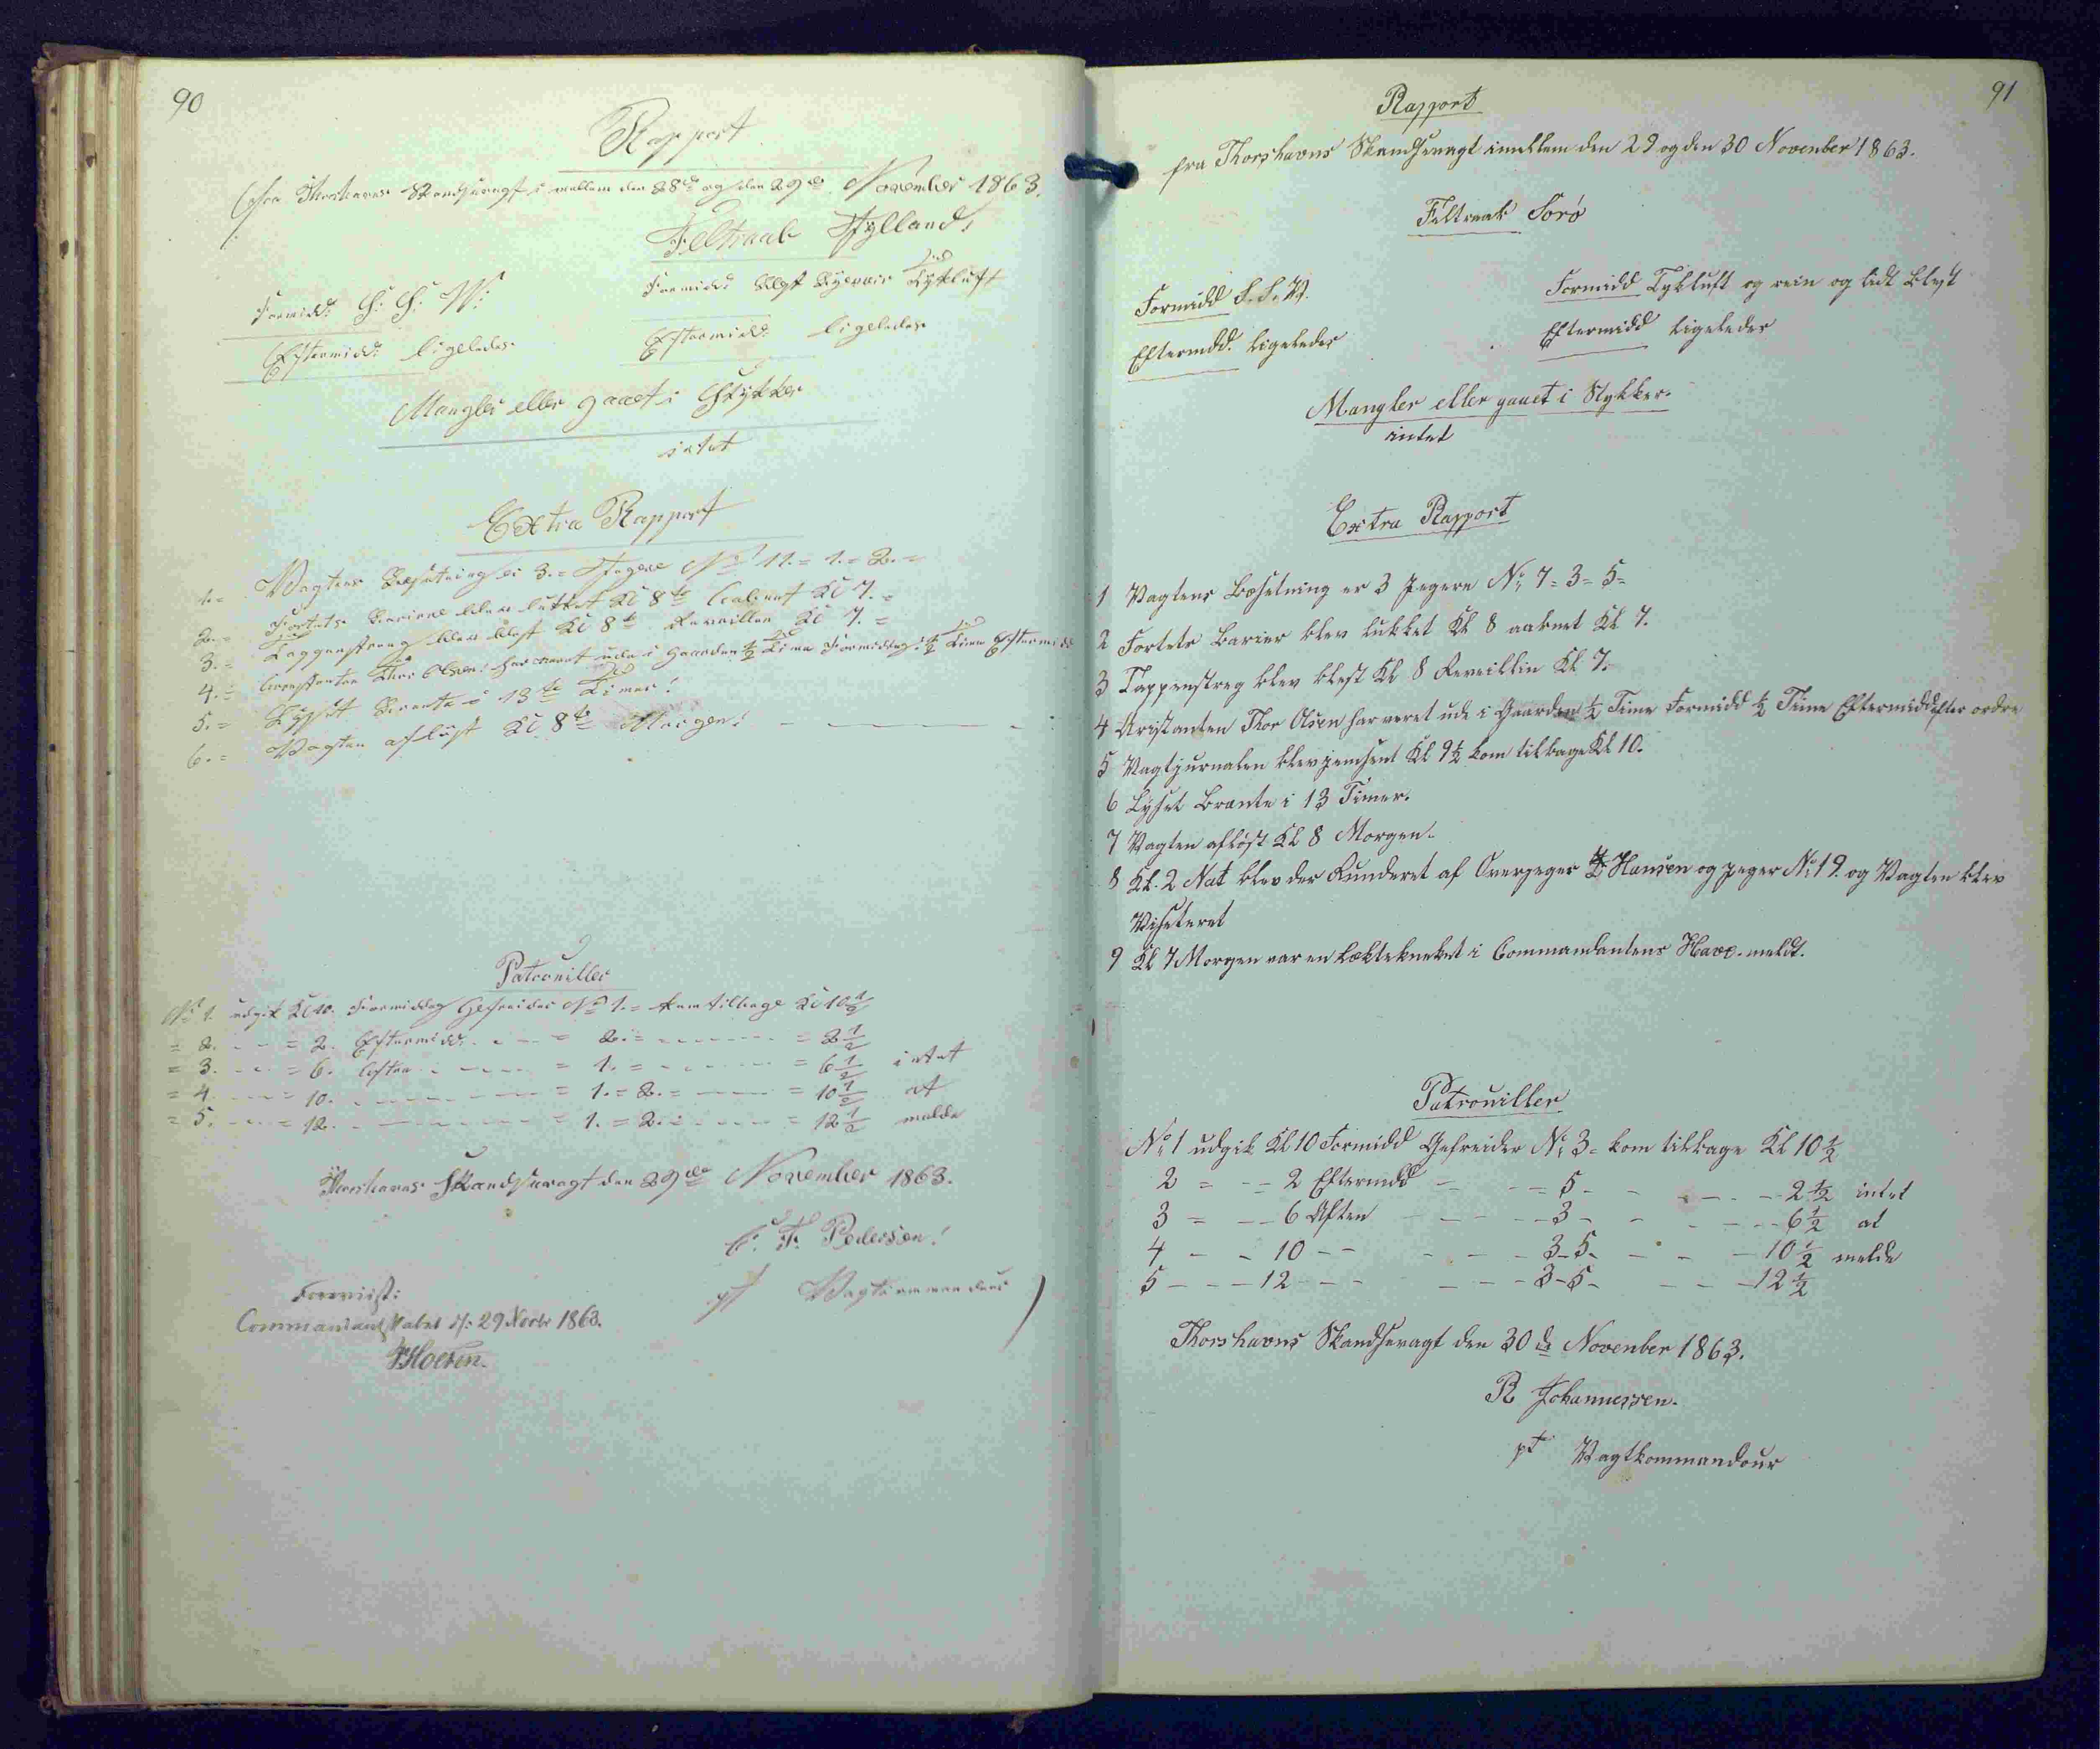 90
Rapport
fra Thorshavns Skandsevagt i mellem den 28de og den 29de November 1863.
Feltraab Jylland.
Formidd: S: S: W:
Formidd: Blæst Tykluft
Eftermidd: ligeledes.
Eftermidd: ligeledes.
Mangler eller gaaet i Stykker
intet
Extra Rapport
1.= Vagtens Besætning er 3.= Jægere No 11.= 1.= 2.=
2.= Fortets Bariere blev lukket Kl 8te aabnet Kl 7.=
3.= Tappenstreng blev blæst Kl 8te Reveillen Kl 7.=
4.= Arestanten Thor Olsen har været ude i Gaarden ½ Time Formiddag: ½ Time Eftermidd
5.= Lyset Brænte i 13te Timer!
6.= Vagten afløst Kl 8te Morgen!
Patrouiller
No 1. udgik Kl 10. Formiddag Gefreider No 1.= kom tilbage Kl 10½
= 2. - - = 2. Eftermidd. - - = 2.= - - - = 2½
= 3. - - = 6. Aften - - - = 1.= - - - = 6½ intet
= 4. - - = 10. - - - = 1.= 2.= - - - = 10½ at
= 5. - - = 12. - - - = 1.= 2.= - - - = 12½ melde
Thorshavns Skandsevagt den 29de November 1863.
C. F. Pedersen!
pt Vagtcommandeur
Foreviist:
Commandantskabet d/: 29 Novbr 1863.
91
Rapport
fra Thorshavns Skandsevagt imellem den 29 og den 30 November 1863.
Feltraab Sorø
Formidd S. S. W.
Formidd Tykluft og rein og lidt blest
Eftermdd. ligeledes
Eftermidd ligeledes
Mangler eller gaaet i Stykker.
intet
Extra Rapport
1 Vagtens Besetning er 3 Jegere No 7= 3= 5=
2 Fortets Barier blev lukket Kl 8 aabnet Kl 7.
3 Tappenstreg blev blest Kl 8 Reveillin Kl 7.
4 Aristanten Thor Olsen har veret ude i Gaarden ½ Time Formidd ½ Time Eftermidd efter ordre
5 Vagtjurnalen blev jemsent Kl 9½ kom tilbage Kl 10.
6 Lyset Brænte i 13 Timer.
7 Vagten afløst Kl 8 Morgen.
8 Kl. 2 Nat blev der Runderet af Overjeger Hansen og jeger No 19. og Vagten blev
Viseteret
9 Kl 7 Morgen var en Lægteknekket i Commandantens Have. meldt.
Patrouiller
No 1 udgik Kl 10 Formidd Gefreider No 3= kom tilbage Kl 10½
2 = - = 2 Eftermdd - - = 5 - - - - 2½ intet
3 = - - 6 Aften - - - - 3 - - - - 6½ at
4 - - 10 - - - - - 3-5- - - - 10½ melde
5 - - - 12 - - - - - 3-5- - - - 12½
Thorshavns Skandsevagt den 30de November 1863.
R Johannessen.
pt Vagtkommandour